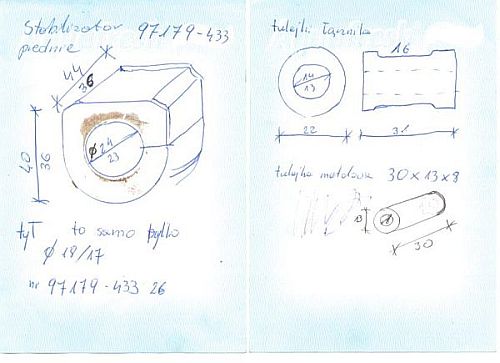 Stabilizator 97179-433
piednie
44
36
40
36
ø 24
23
tył to samo tylko
ø 18/17
nr 97179-433 26
tulejki łącznika
16
14
13
22
31
tulejka metalowa 30x13x8
13
30